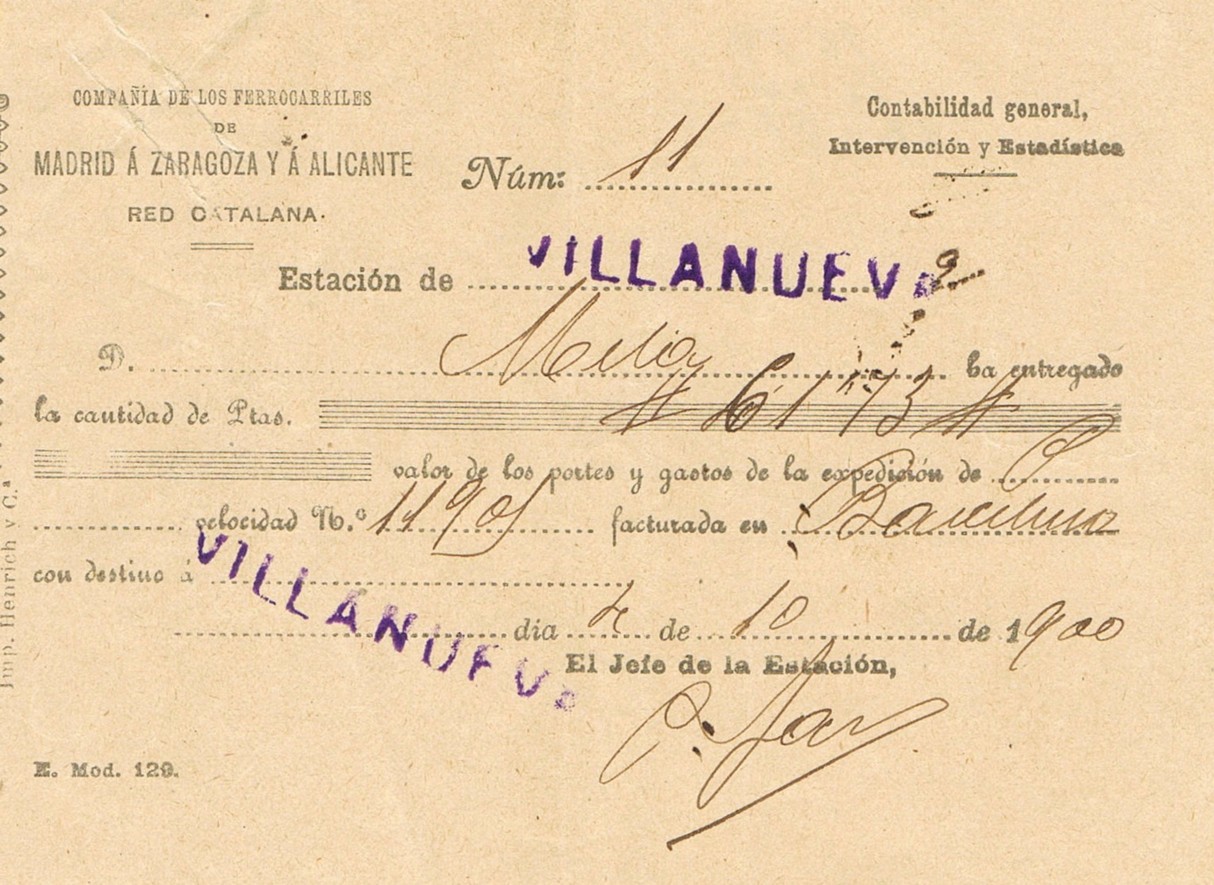 COMPAÑÍA DE LOS FERROCARRILES
DE
MADRID Á ZARAGOZA Y Á ALICANTE
RED CATALANA.
Contabilidad general,
Intervención y Estadística
Núm: 11
Estación de VILLANUEVA
D. ha entregado
la cantidad de Ptas. # 61'73 #
valor de los portes y gastos de la expedición de
velocidad N.º facturada en Barcelona
con destino á VILLANUEVA
dia de 10 de 1900
El Jefe de la Estación,
E. Mod. 129.
Imp. Henrich y C.ª